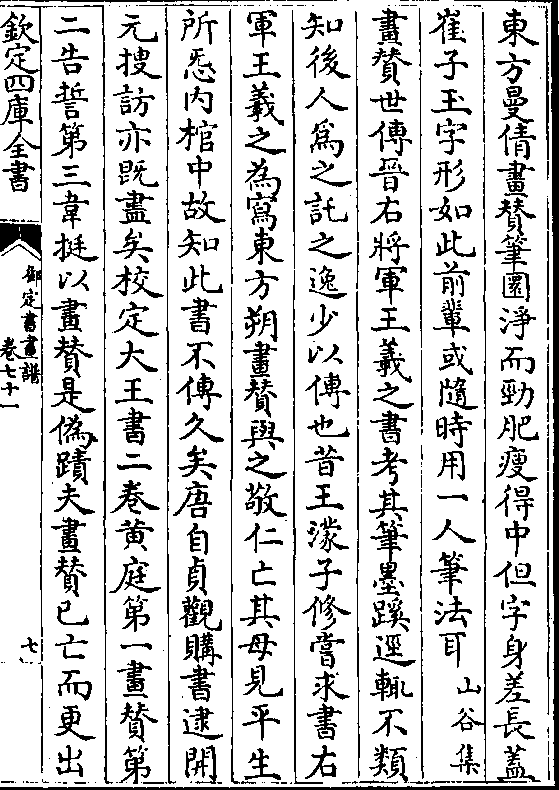 東方曼倩畫贊筆圓淨而勁肥瘦得中但字身差長蓋
崔子玉字形如此前輩或隨時用一人筆法耳 山谷集
畫贊世傳晉右將軍王羲之書考其筆墨蹊逕輒不類
知後人爲之託之逸少以傳也昔王濛子修嘗求書右
軍王羲之為寫東方朔畫贊與之敬仁亡其母見平生
所愛內棺中故知此書不傳久矣唐自貞觀購書逮開
元搜訪亦既盡矣校定大王書二卷黄庭第一畫贊第
二告誓第三韋挺以畫贊是偽蹟夫畫贊已亡而更出
欽定四庫全書
御定書畫譜
卷七十一
七